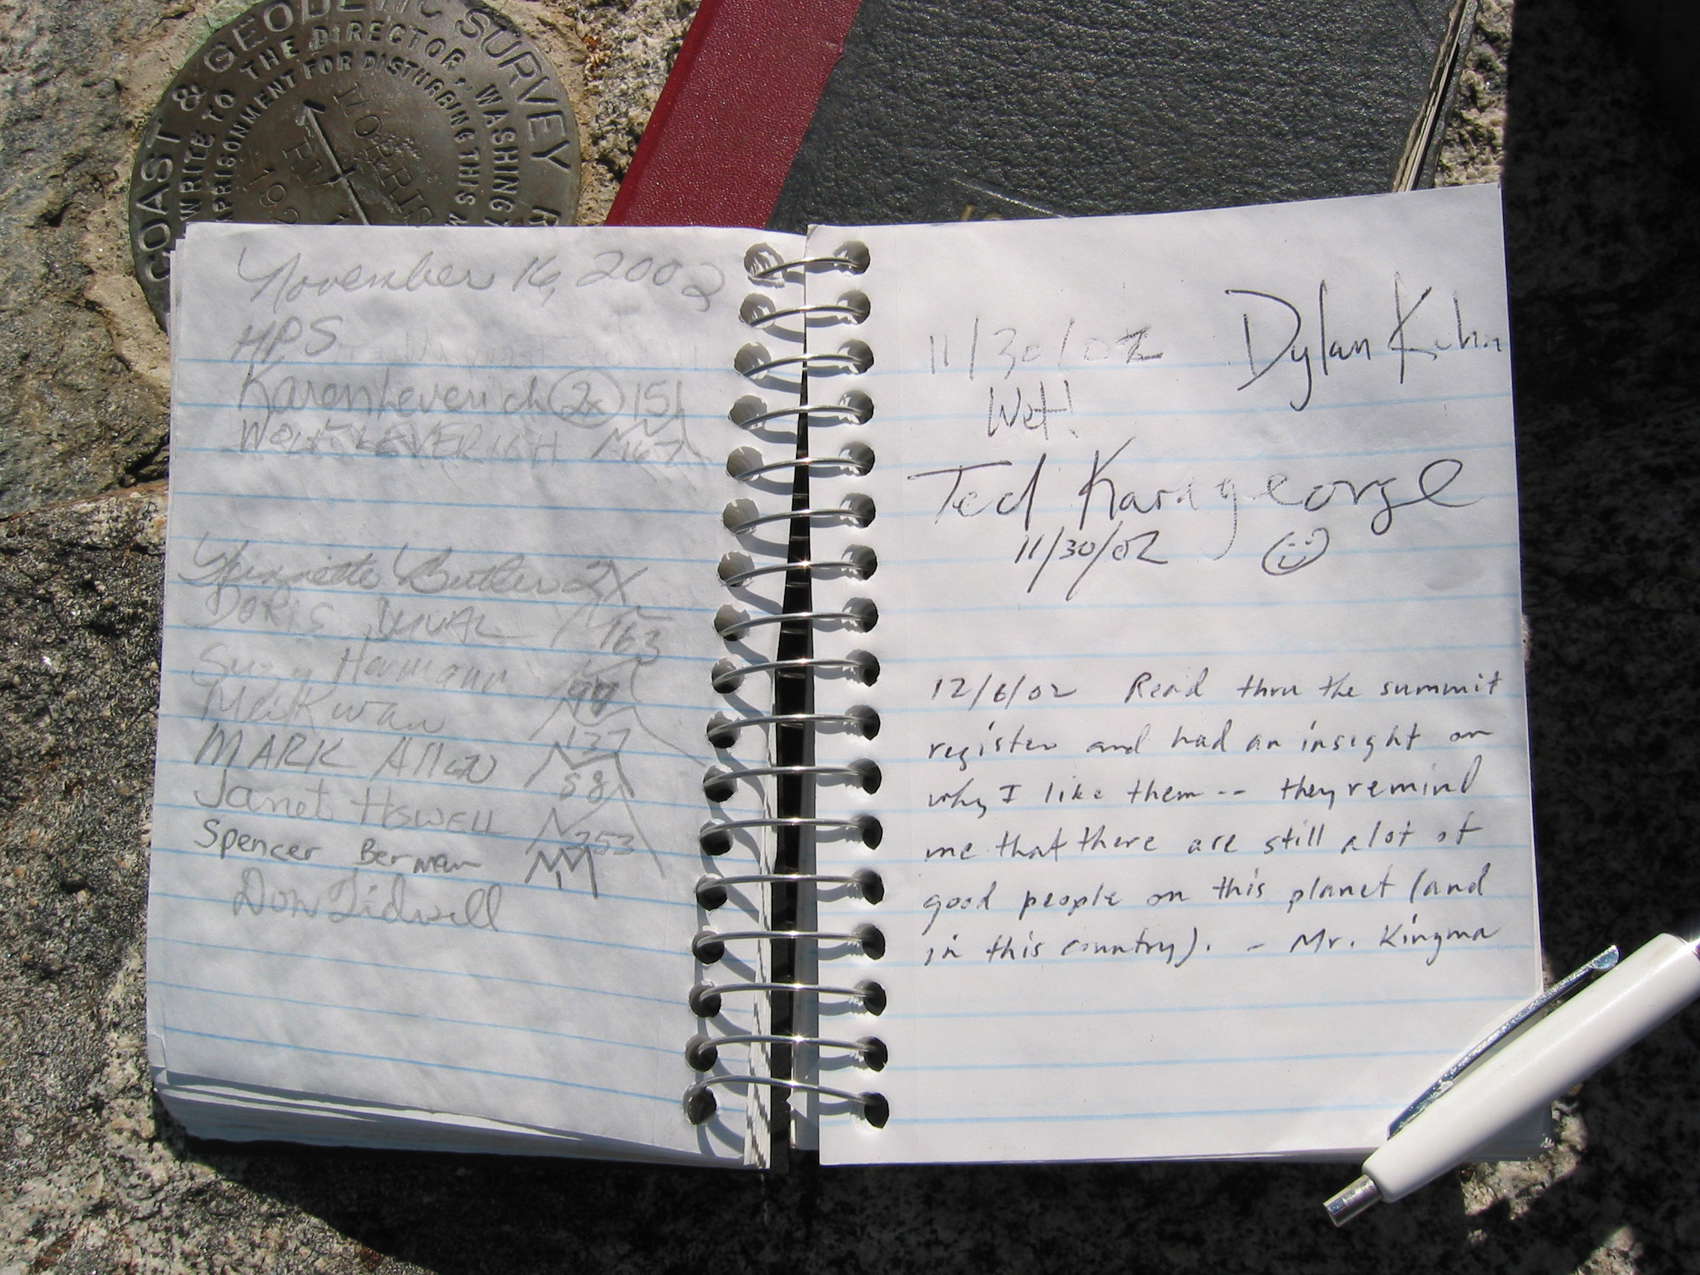 COAST & GEODETIC SURVEY
WRITE TO THE DIRECTOR, WASHING
IMPRISONMENT FOR DISTURBING THIS
November 16, 2002
HPS
Karen Leverich 2x 151
LEVERICH 167
Butler 2x
DORIS DUVAL 163
Suzy Hermann
Mei Kwan 137
MARK Allen 58
Janet HOWELL 253
Spencer Berman 1
Don Tidwell
11/30/02 Dylan
Wet!
Ted Karageorge
11/30/02
12/6/02 Read thru the summit
register and had an insight on
why I like them -- they remind
me that there are still alot of
good people on this planet (and
in this country). - Mr. Kingma